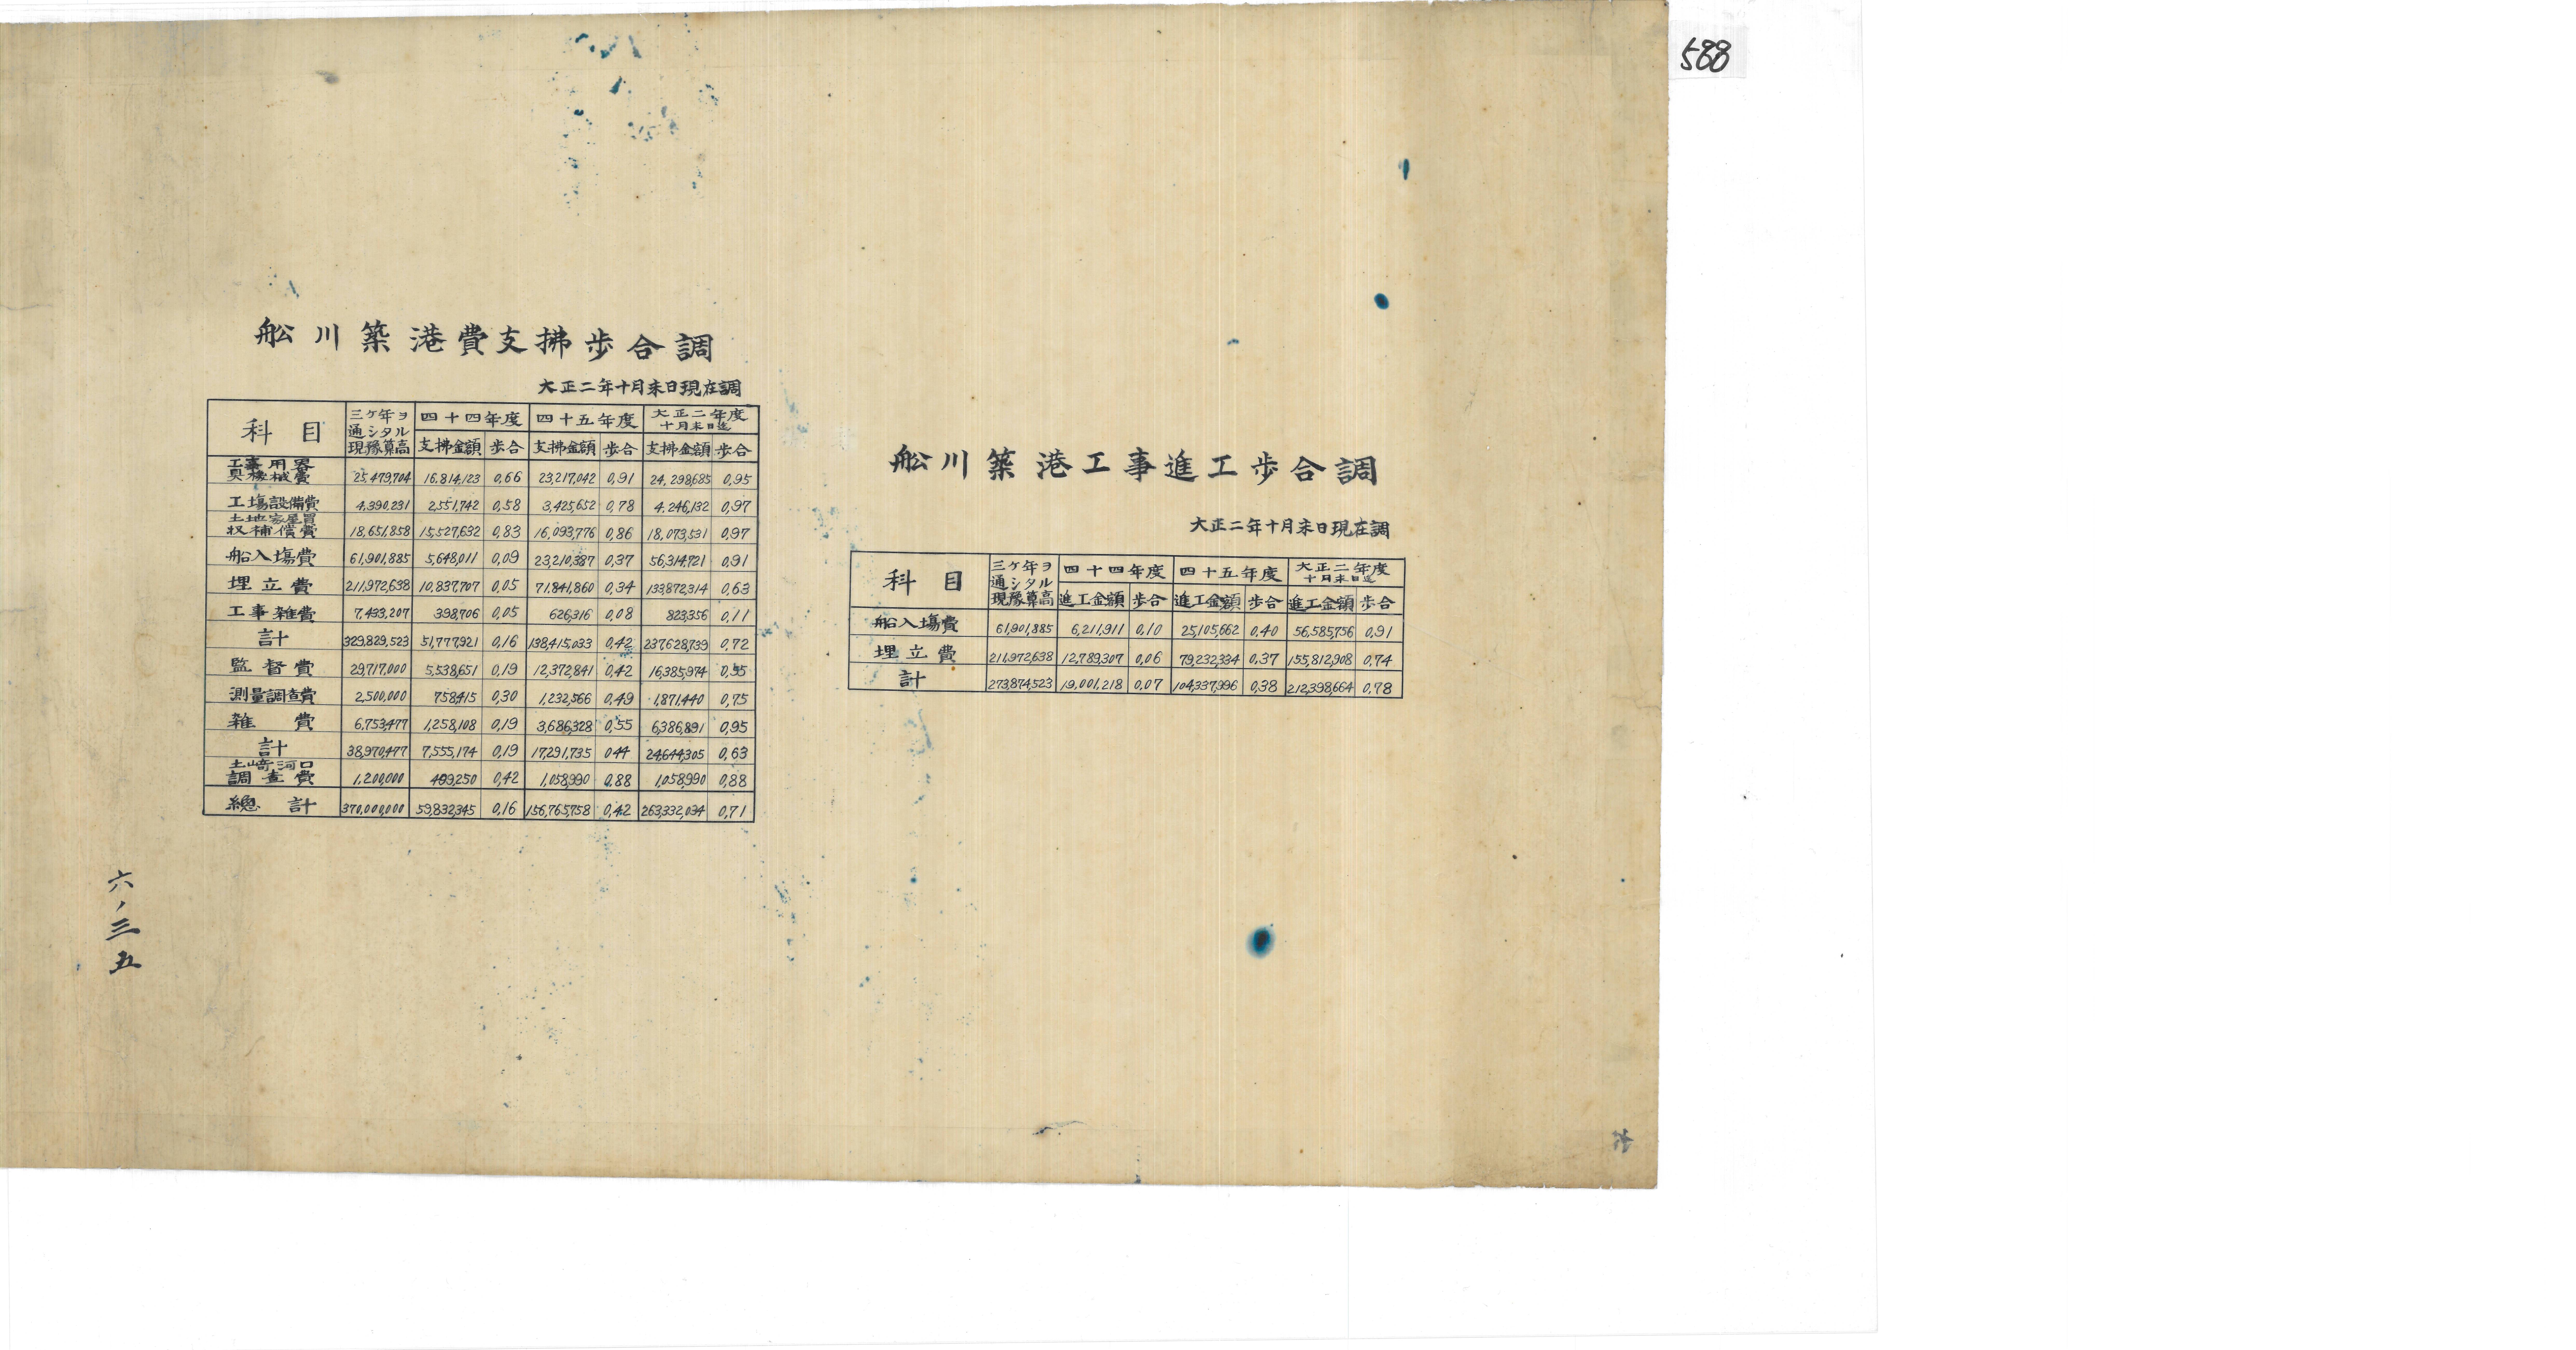 588
舩川築港費支拂歩合調
大正二年十月末日現在調
科目 三ケ年ヲ通シタル現豫算高 四十四年度 支拂金額 歩合 四十五年度 支拂金額 歩合 大正二年度十月末日迄 支拂金額 歩合
工事用器具機械費 25,479,704 16,814,123 0,66 23,217,042 0,91 24,298,685 0,95
工場設備費 4,390,231 2,551,742 0,58 3,425,652 0,78 4,246,132 0,97
土地家屋買収補償費 18,651,858 15,527,632 0,83 16,093,776 0,86 18,073,531 0,97
船入場費 61,901,885 5,648,011 0,09 23,210,387 0,37 56,314,721 0,91
埋立費 211,972,638 10,837,707 0,05 71,841,860 0,34 133,872,314 0,63
工事雑費 7,433,207 398,706 0,05 626,316 0,08 823,356 0,11
計 329,829,523 51,777,921 0,16 138,415,033 0,42 237,628,739 0,72
監督費 29,717,000 5,538,651 0,19 12,372,841 0,42 16,385,974 0,55
測量調査費 2,500,000 758,415 0,30 1,232,566 0,49 1,871,440 0,75
雑費 6,753,477 1,258,108 0,19 3,686,328 0,55 6,386,891 0,95
計 38,970,477 7,555,174 0,19 17,291,735 0,44 24,644,305 0,63
土崎河口調査費 1,200,000 499,250 0,42 1,058,990 0,88 1,058,990 0,88
總計 370,000,000 59,832,345 0,16 156,765,758 0,42 263,332,034 0,71
舩川築港工事進工歩合調
大正二年十月末日現在調
科目 三ケ年ヲ通シタル現豫算高 四十四年度 進工金額 歩合 四十五年度 進工金額 歩合 大正二年度十月末日迄 進工金額 歩合
船入場費 61,901,885 6,211,911 0,10 25,105,662 0,40 56,585,756 0,91
埋立費 211,972,638 12,789,307 0,06 79,232,334 0,37 155,812,908 0,74
計 273,874,523 19,001,218 0,07 104,337,996 0,38 212,398,664 0,78
六ノ三五